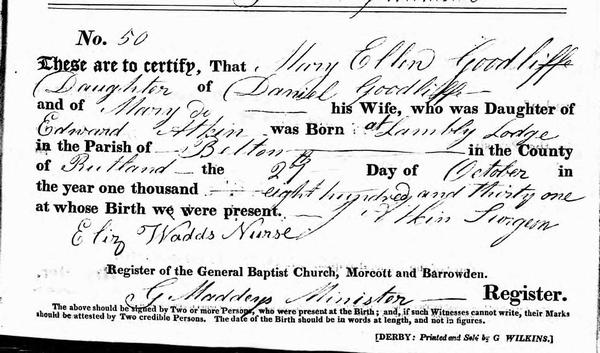 No. 50
These are to certify, That Mary Ellen Goodliffe
Daughter of Daniel Goodliffe
and of Mary do his Wife, who was Daughter of
Edward Atkin was Born at Lambly Lodge
in the Parish of Belton in the County
of Rutland the 27th Day of October in
the year one thousand eight hundred and thirty one
at whose Birth we were present. Atkin Surgeon
Eliz Wadds Nurse
Register of the General Baptist Church, Morcott and Barrowden.
G Maddeys Minister Register.
The above should be signed by Two or more Persons, who were present at the Birth; and, if such Witnesses cannot write, their Marks
should be attested by Two credible Persons. The date of the Birth should be in words at length, and not in figures.
[DERBY: Printed and Sold by G WILKINS.]